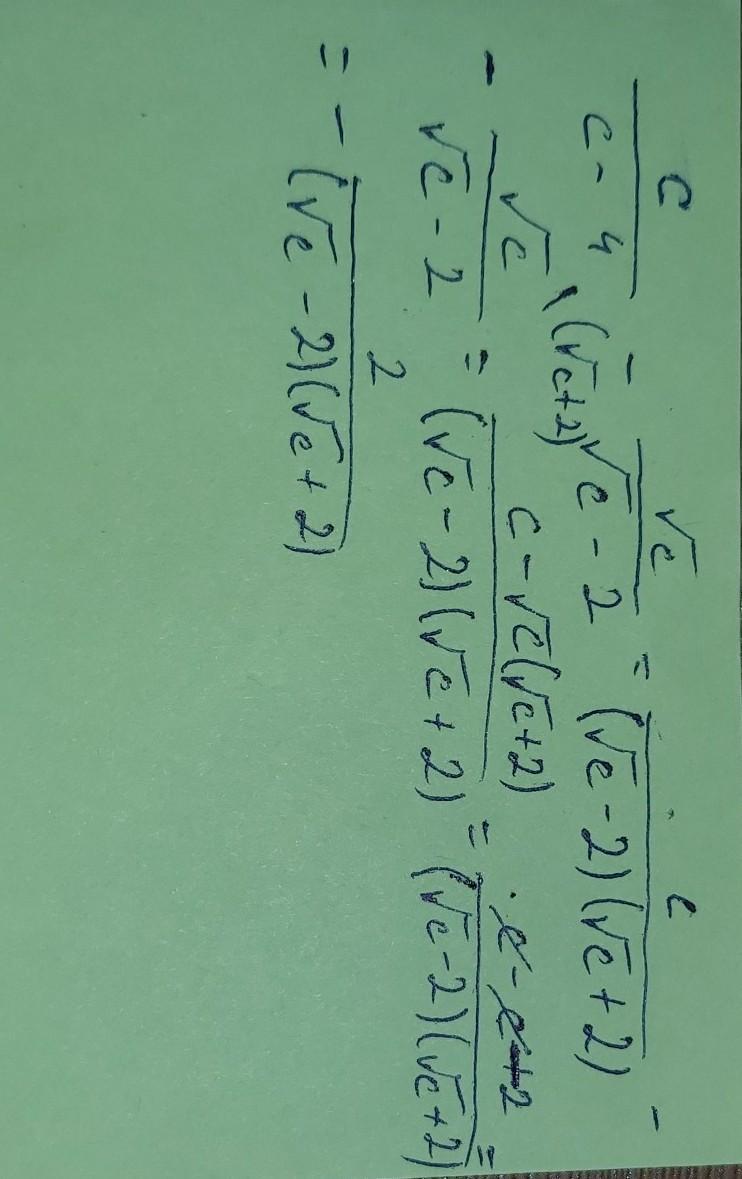 c/(c-4) - √c/(√c-2) = c/((√c-2)(√c+2)) -
- √c\(√c+2)/(√c-2) = (c-√c(√c+2))/((√c-2)(√c+2)) = (c-c-2)/((√c-2)(√c+2)) =
= - 2/((√c-2)(√c+2))